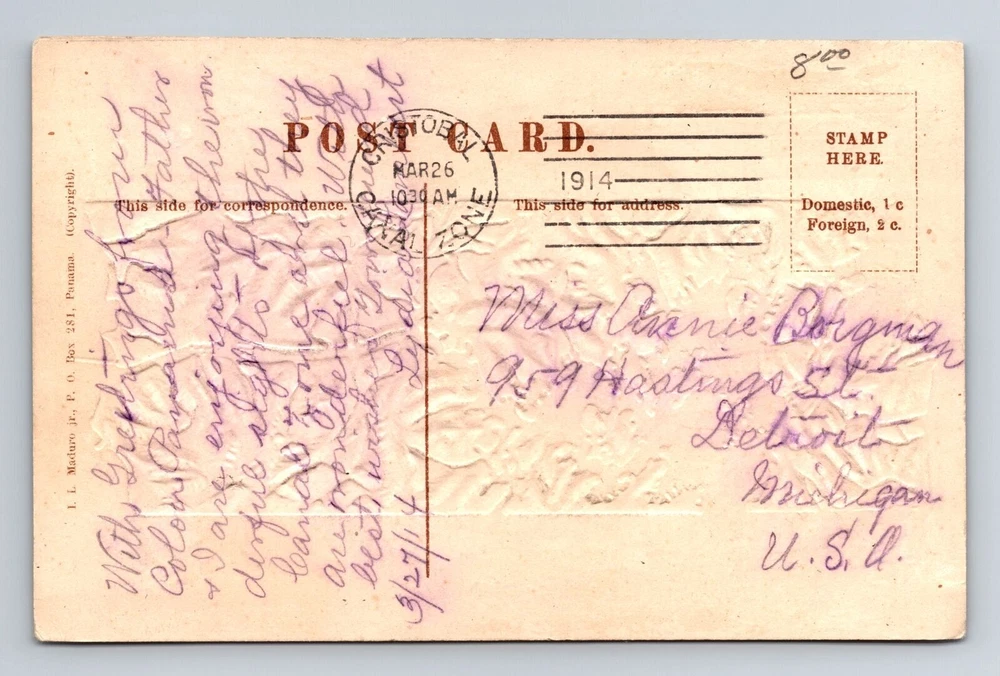 8.00
POST CARD.
CRISTOBAL
MAR 26
1030 AM
CANAL ZONE
1914
STAMP
HERE.
Domestic, 1 c
Foreign, 2 c.
This side for correspondence.
This side for address.
I. L. Maduro jr., P. O. Box 281, Panama. (Copyright).
With Greetings from
Colon Panama. Father
& I are enjoying the won
derful sights of the
Canal Zone, and they
are wonderful. With
best wishes, your
Lydia
3/27/14
Miss Annie Borgman
959 Hastings St.
Detroit
Michigan
U. S. A.